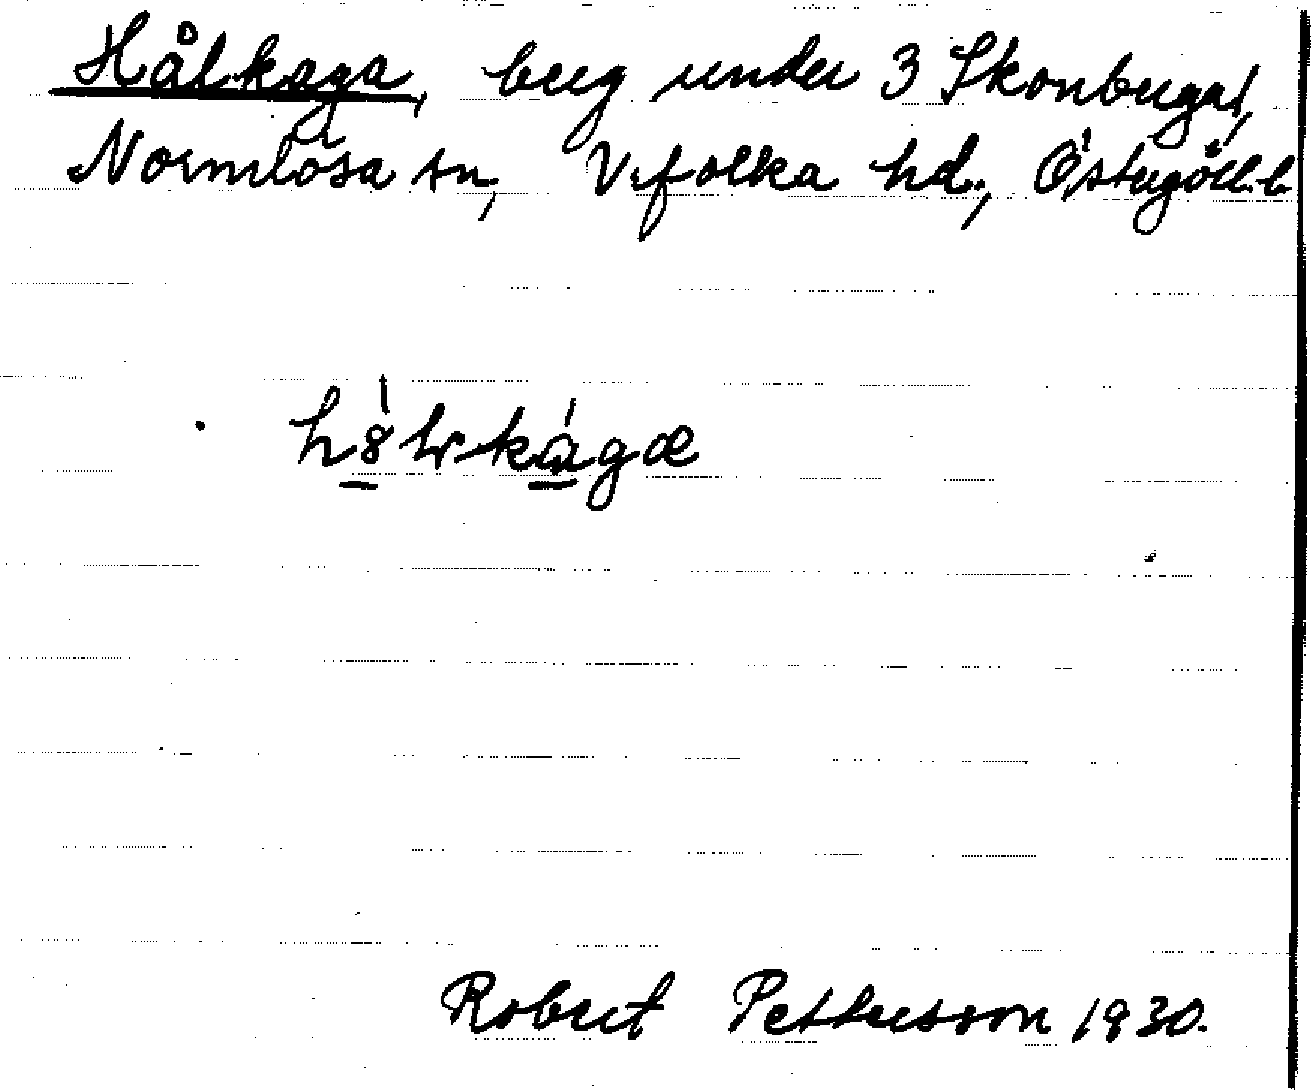 Hålkaga, berg under 3 Skonberga,
Normlösa sn, Vifolka hd., Östergötl. l.
Robert Pettersson 1930.